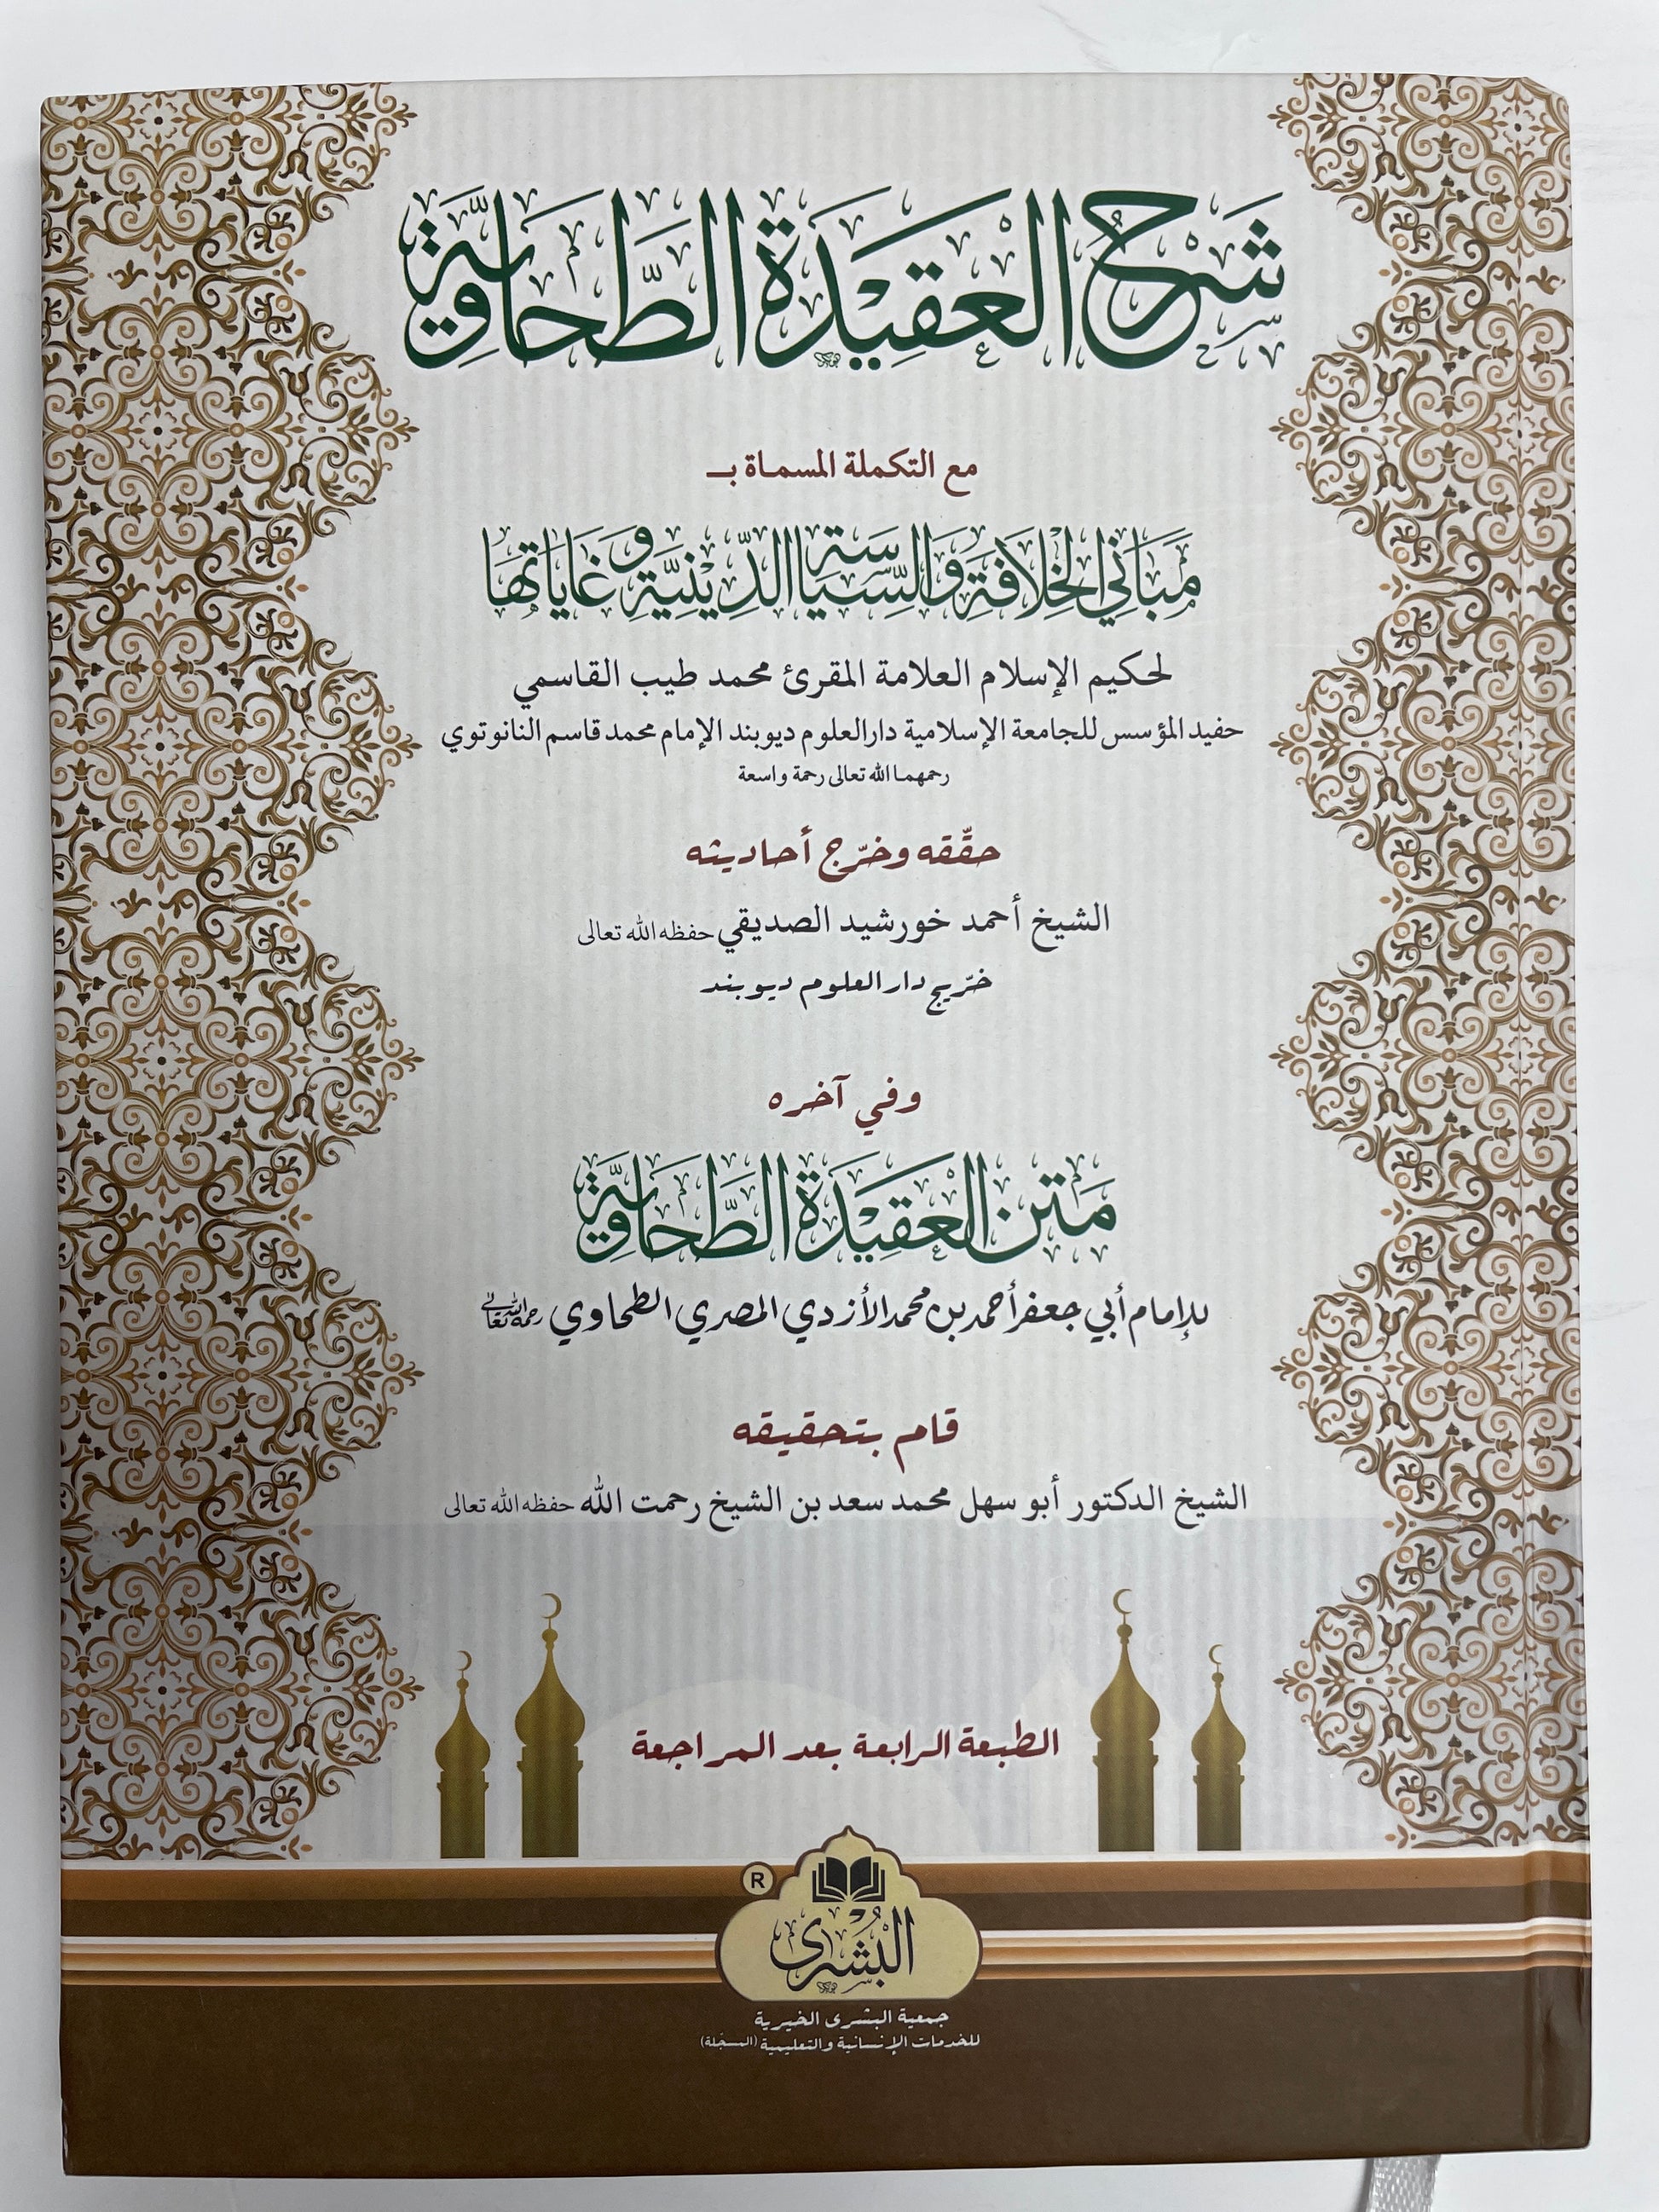 شرح العقيدة الطحاوية
مع التكملة المسماة بـ
مَبَاني الخلافة والسّياسة الدّينيّة وغاياتها
لحكيم الإسلام العلامة المقرئ محمد طيب القاسمي
حفيد المؤسس للجامعة الإسلامية دارالعلوم ديوبند الإمام محمد قاسم النانوتوي
رحمهما الله تعالى رحمة واسعة
حقّقه وخرّج أحاديثه
الشيخ أحمد خورشيد الصديقي حفظه الله تعالى
خرّيج دارالعلوم ديوبند
وفي آخره
متن العقيدة الطحاوية
للإمام أبي جعفر أحمد بن محمد الأزدي المصري الطحاوي رحمه الله تعالى
قام بتحقيقه
الشيخ الدكتور أبو سهل محمد سعد بن الشيخ رحمت الله حفظه الله تعالى
الطبعة الرابعة بعد المراجعة
R
البُشرى
جمعية البشرى الخيرية
للخدمات الإنسانية والتعليمية (المسجّلة)